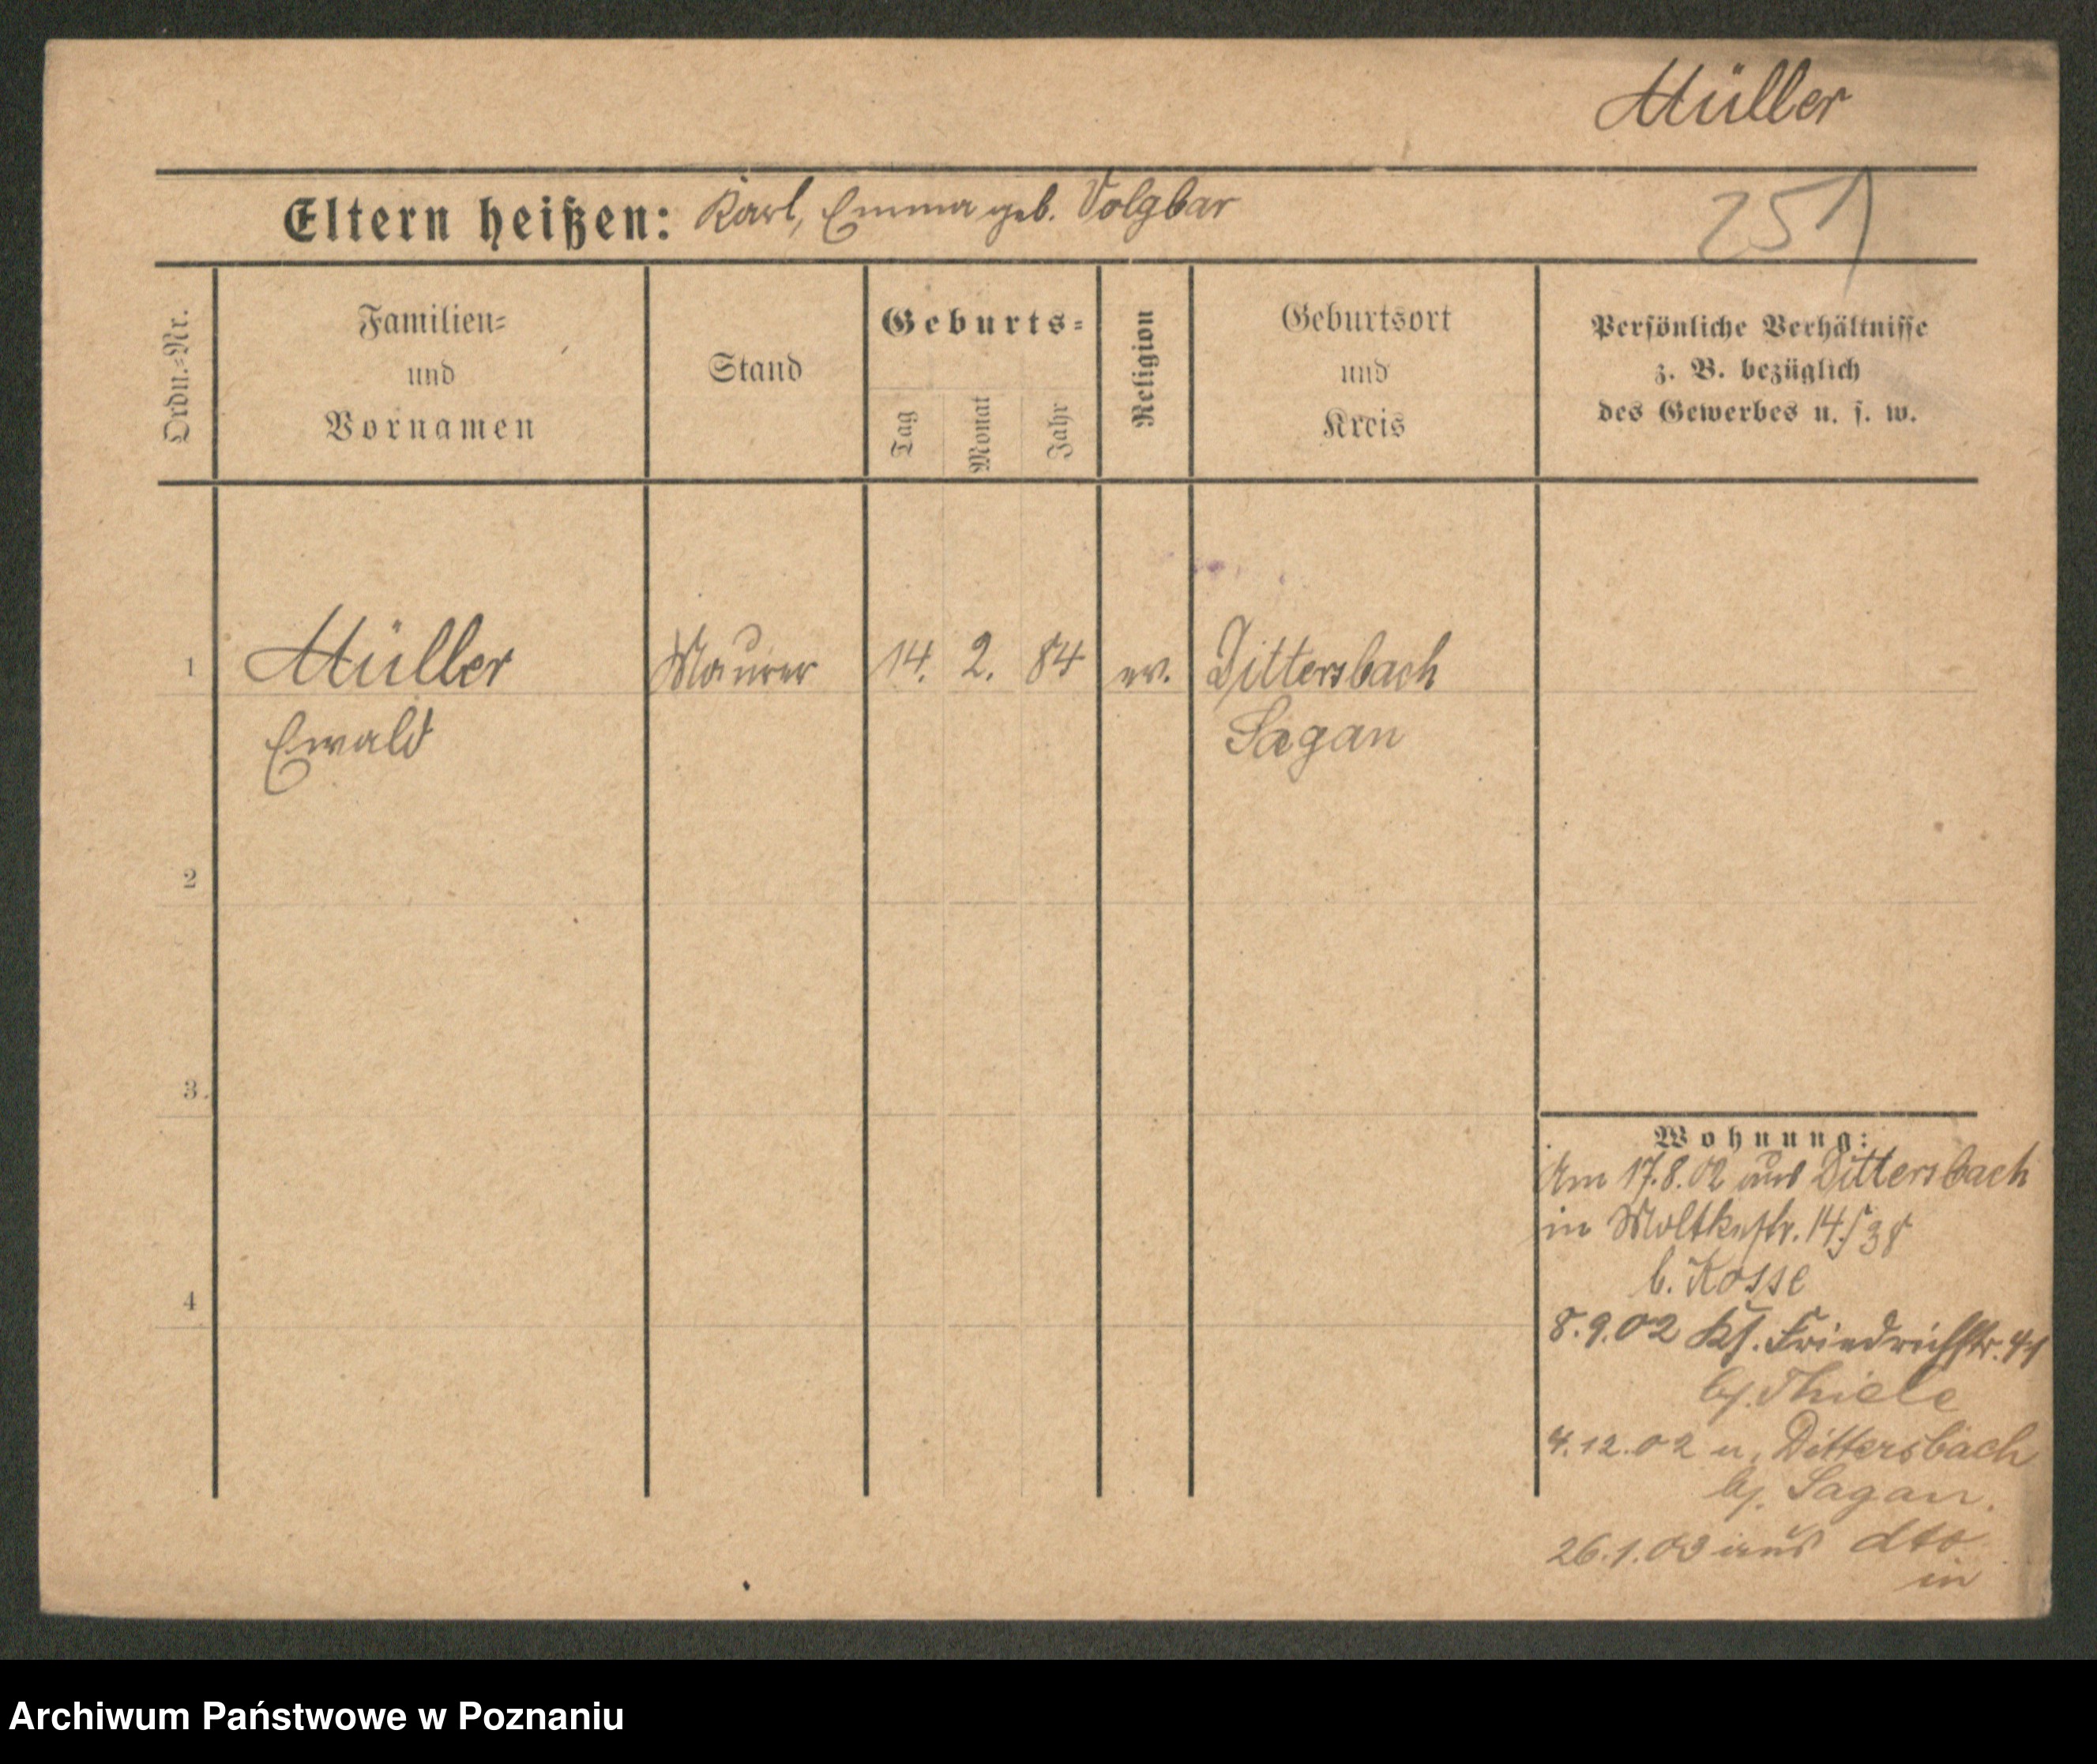 Müller
Eltern heißen: Karl, Emma geb. Volgbar
251
Ordn.-Nr.
Familien-
und
Vornamen
Stand
Geburts-
Tag
Monat
Jahr
Religion
Geburtsort
und
Kreis
Persönliche Verhältnisse
z. B. bezüglich
des Gewerbes u. s. w.
1 Müller Maurer 14. 2. 84 ev. Dittersbach
Ewald Sagan
2
3.
4
Wohnung:
Am 17.8.02 aus Dittersbach
in Moltkestr. 14/38
b. Kosse
8.9.02 Friedrichstr. 41
bj. Thiele
4.12.02 n. Dittersbach
bj. Sagan.
26.1.03 aus dto
in
Archiwum Państwowe w Poznaniu